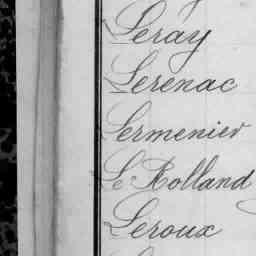 Leray
Lerenac
Lermenier
Le Rolland
Leroux